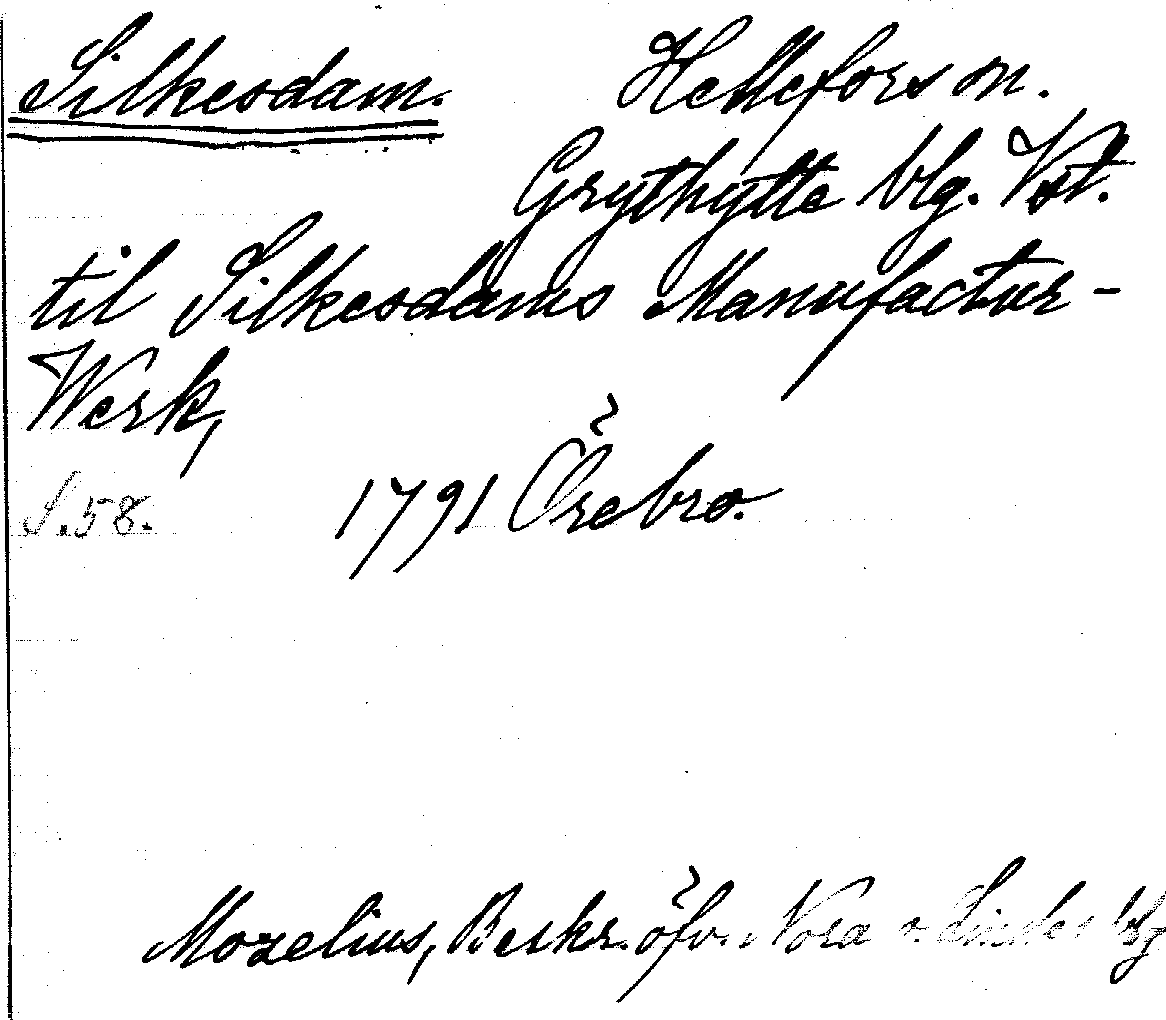 Silkesdam. Hellefors sn.
Grythytte blg. Vst.
til Silkesdams Manufactur-
Werk,
S. 58. 1791 Örebro.
Mozelius, Beskr. öfv. Nora o. Lindes blg